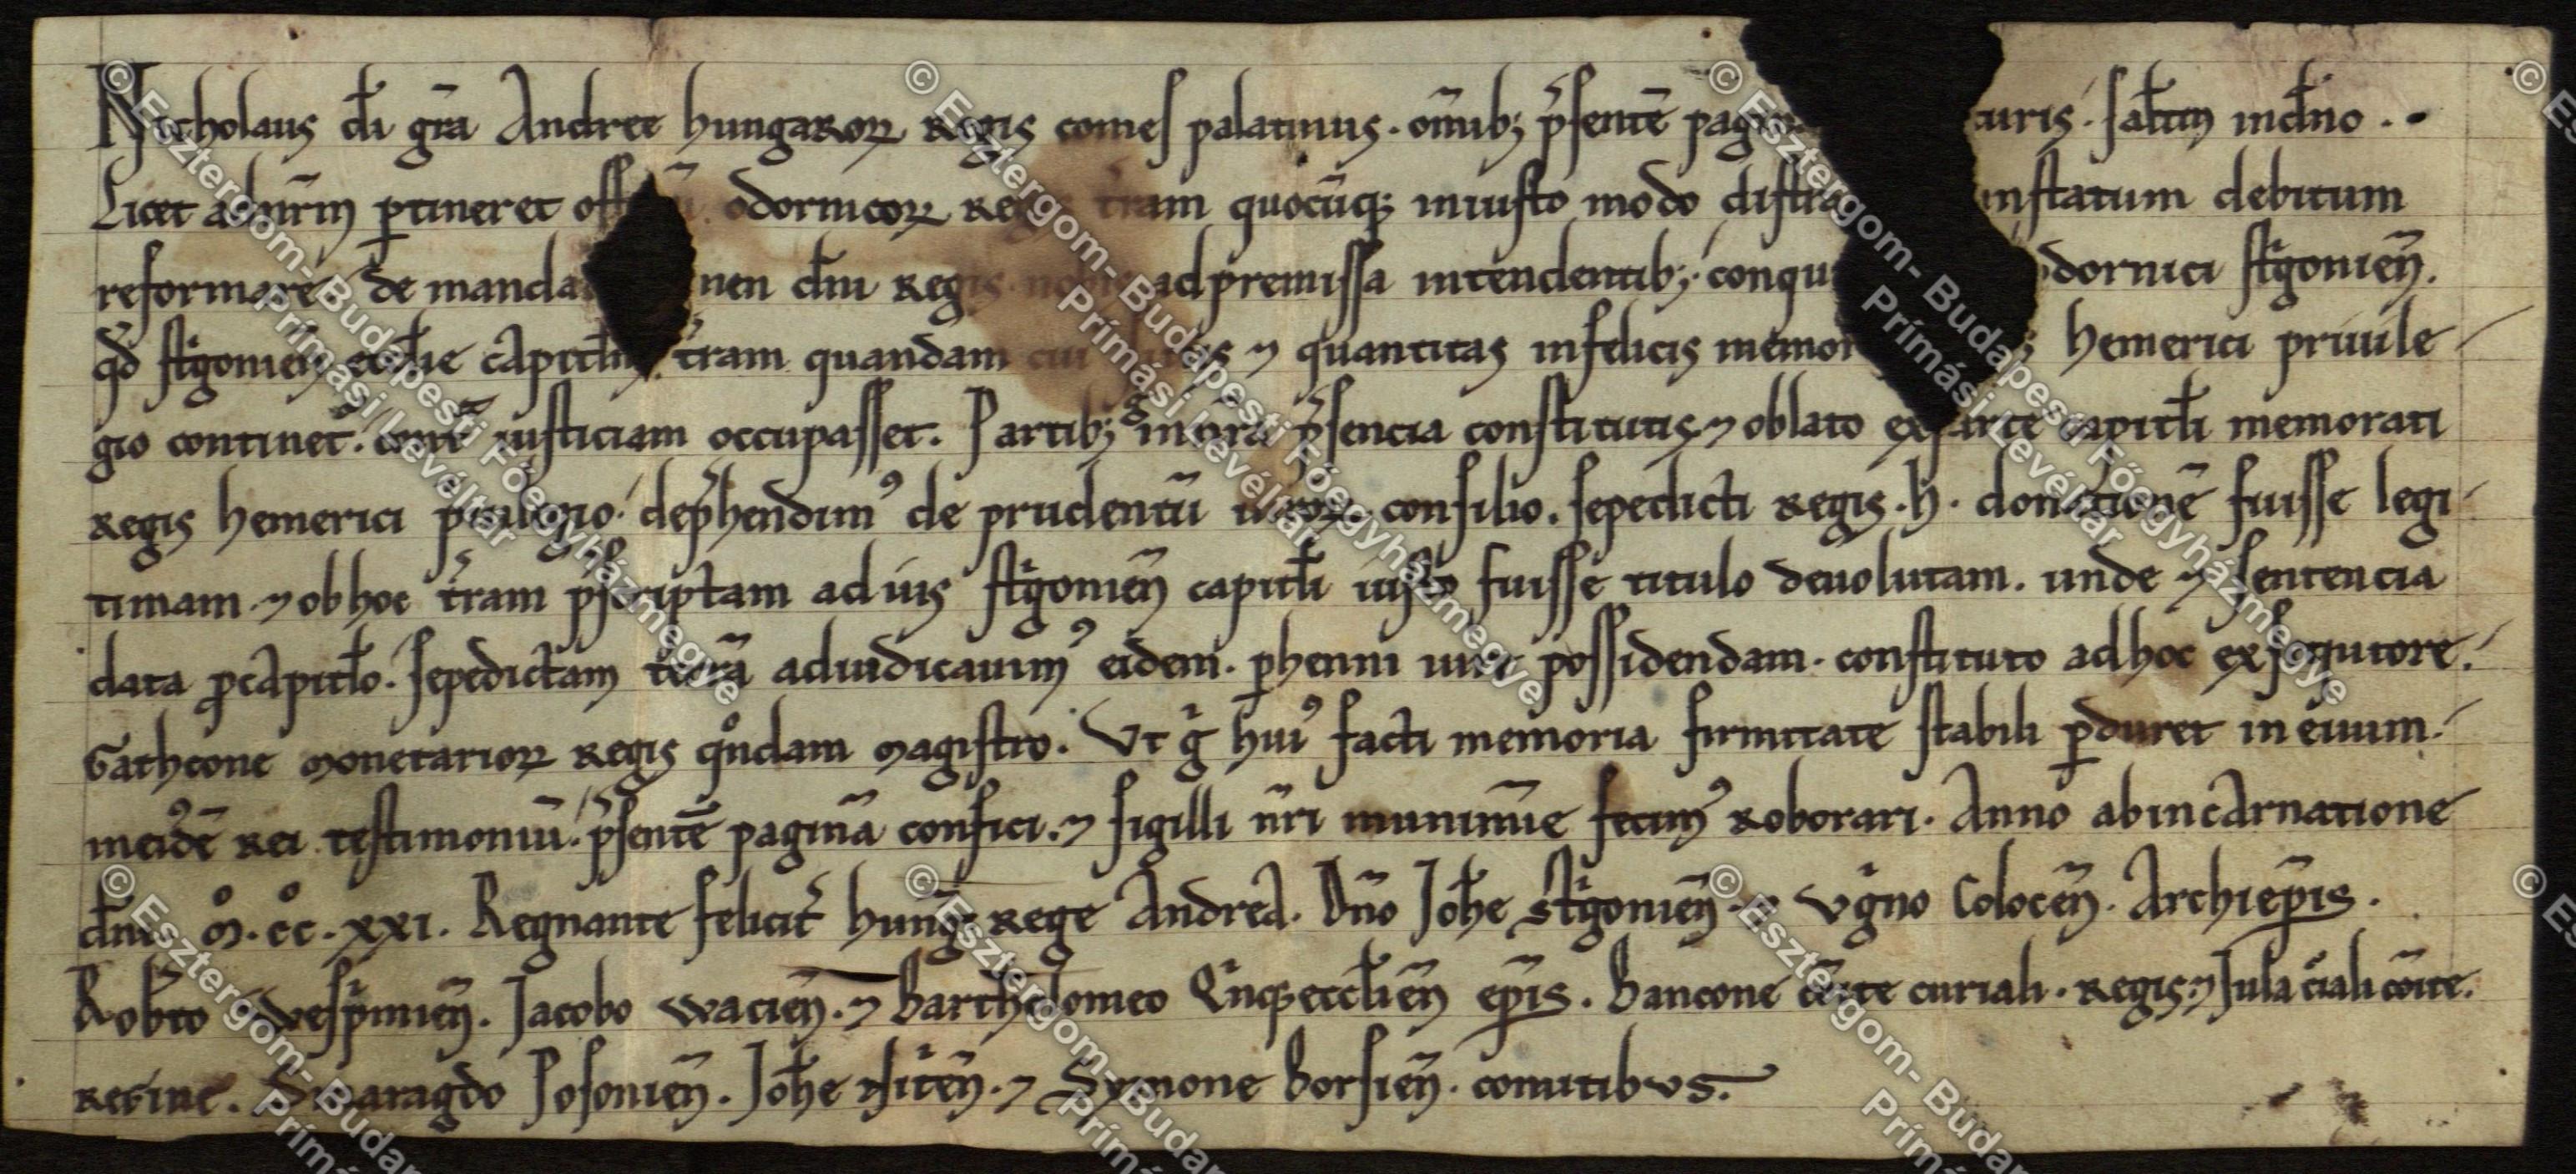 Nicholaus dī grā Andree hungaroꝝ Regis comes palatinus. omīb; p̄sentē turis. salt̄m in dn̄o.
Licet ad nr̄m ꝑtineret odornicoꝝ t̄ram quocūq; iniusto modo instatum debitum
reformare. de dn̄i Regis ad premissa intendentib;. dornici st̄goniēn.
qd̄ st̄goniēn ecclīe capitlm̄ t̄ram quandam ⁊ quantitas in felicis hemerici priuile
gio continet᷑. cont̄ iusticiam occupasset. Partib; g̊ in nr̄a p̄sencia constitutis ⁊ oblato ex parte capitlī memorati
Regis hemerici priuilegio. dep̄hendimꝰ de prudentū uiroꝝ consilio. sepedicti Regis .h. donationē fuisse legi
timam. ⁊ ob hoc t̄ram p̄scriptam ad ius st̄goniēn capitlī iusto fuisse titulo deuolutam. unde ⁊ sentencia
data ꝓ capitlō. sepedictam terrā adiudicauimꝰ eidem. ꝑhenni iure possidendam. constituto ad hoc exsequtore.
Gatheone monetarioꝝ Regis qͦndam magistro. Vt g̊ huiꝰ facti memoria firmitate stabili ꝑduret in euum.
in eiꝰdē rei testimoniū. p̄sentē paginā confici. ⁊ sigilli nr̄i munimīe fecimꝰ roborari. Anno ab incarnatione
dn̄i .mͦ.ccͦ.xxi. Regnante felicit̄ hung̅. rege Andrea. Dn̄o Joh̄e st̄goniēn. ⁊ vg̊no Colocēn. Archiep̄is.
Rob̄to wesp̄miēn. Jacobo waciēn. ⁊ Bartholomeo Qⁱnq;ecclīēn ep̄is. Bancone cōite curiali. regis. ⁊ Jula cͥali cōite.
regine. Smaragdo Posoniēn. Joh̄e nitēn. ⁊ Symone Borsiēn. comitibus.
© Esztergom-Budapesti Főegyházmegye
Prímási Levéltár